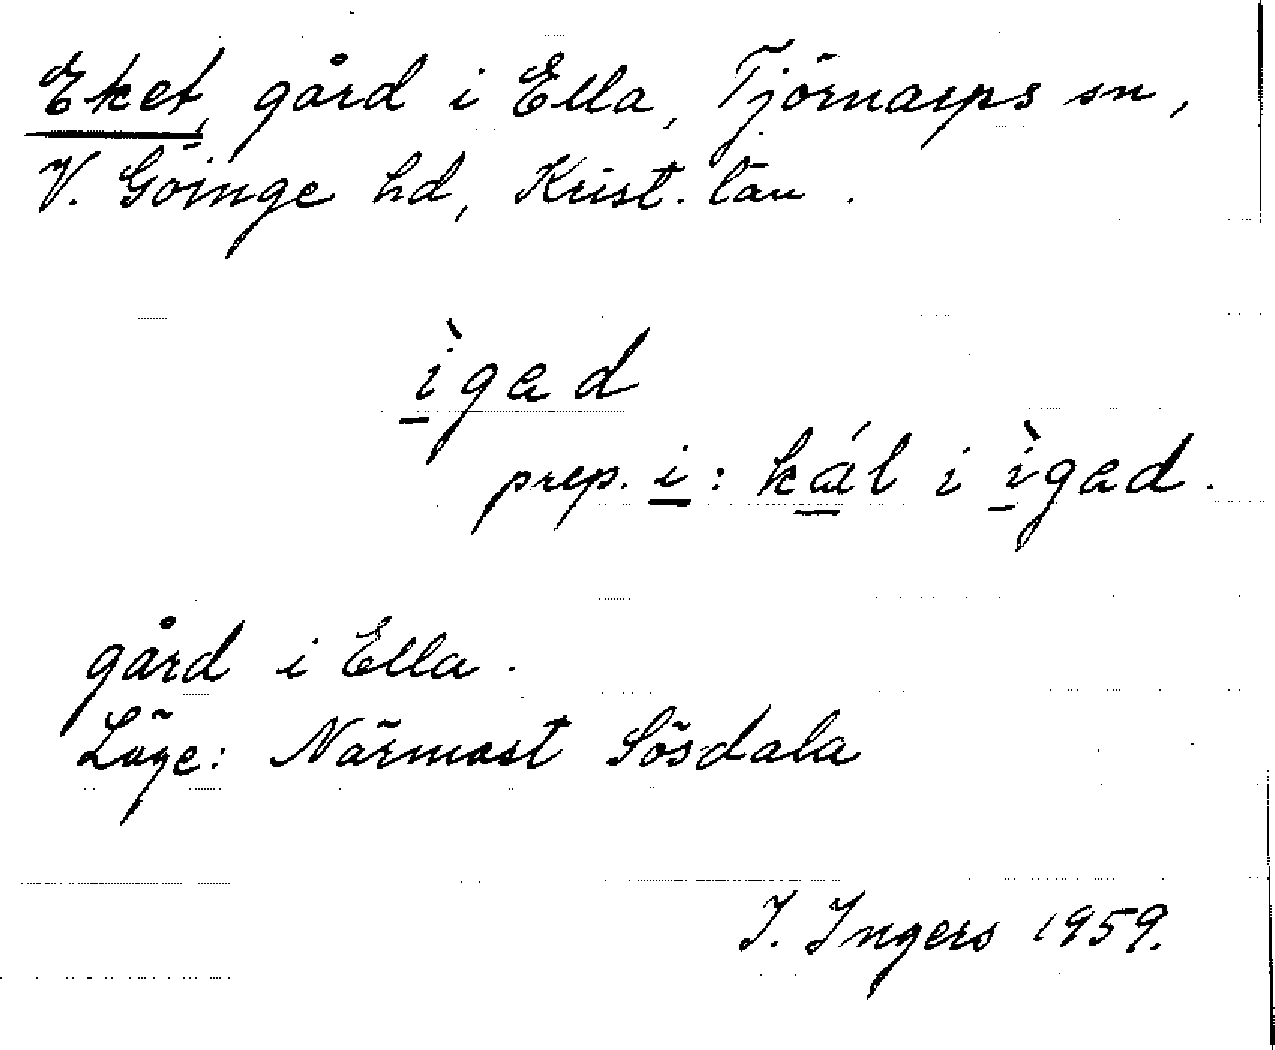 Eket, gård i Ella, Tjörnarps sn,
V. Göinge hd, Krist. län.
ìgad
prep. i: kál i ìgad.
gård i Ella.
Läge: Närmast Sösdala
I. Ingers 1959.